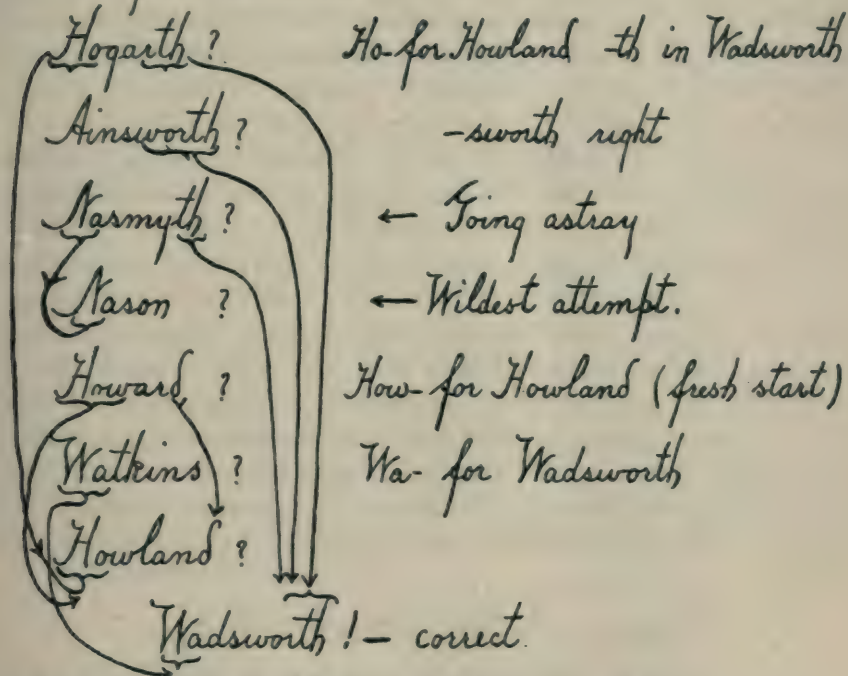 Hogarth ? Ho- for Howland -th in Wadsworth
Ainsworth ? -sworth right
Nasmyth ? ← Going astray
Nason ? ← Wildest attempt.
Howard ? How- for Howland (fresh start)
Watkins ? Wa- for Wadsworth
Howland ?
Wadsworth ! – correct.